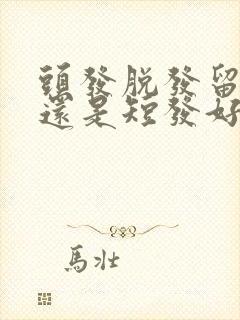 頭發脫發留
還是短發好
馬壯